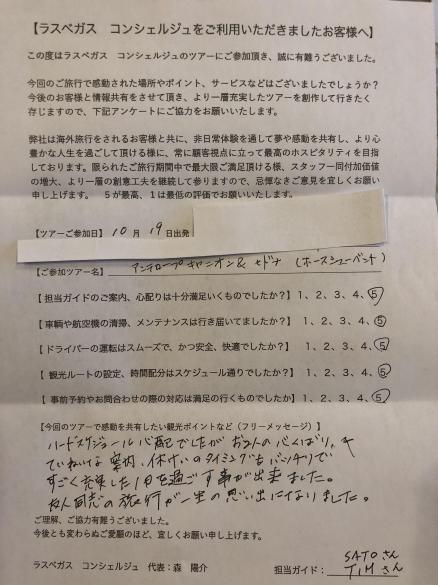 【ラスベガス　コンシェルジュをご利用いただきましたお客様へ】
この度はラスベガス　コンシェルジュのツアーにご参加頂き、誠に有難うございました。
今回のご旅行で感動された場所やポイント、サービスなどはございましたでしょうか？
今後のお客様と情報共有をさせて頂き、より一層充実したツアーを創作して行きたく
存じますので、下記アンケートにご協力をお願いいたします。
弊社は海外旅行をされるお客様と共に、非日常体験を通して夢や感動を共有し、より心
豊かな人生を過ごして頂ける様に、常に顧客視点に立って最高のホスピタリティを目指
しております。限られたご旅行期間中で最大限ご満足頂ける様、スタッフ一同付加価値
の増大、より一層の創意工夫を継続して参りますので、忌憚なきご意見を宜しくお願い
申し上げます。　５が最高、１は最低の評価でお願いいたします。
【ツアーご参加日】 10 月 19 日出発
【ご参加ツアー名】 アンテロープキャニオン& セドナ (ホースシューベント)
【担当ガイドのご案内、心配りは十分満足いくものでしたか？】1、2、3、4、5
【車輌や航空機の清掃、メンテナンスは行き届いてましたか？】1、2、3、4、5
【ドライバーの運転はスムーズで、かつ安全、快適でしたか？】1、2、3、4、5
【観光ルートの設定、時間配分はスケジュール通りでしたか？】1、2、3、4、5
【事前予約やお問合わせの際の対応は満足の行くものでしたか】1、2、3、4、5
【今回のツアーで感動を共有したい観光ポイントなど（フリーメッセージ）】
ハードスケジュール心配でしたがお2人の心くばり、
ていねいな案内、休けいのタイミングもバッチリで
すごく充実した1日を過ごす事が出来ました。
友人同志の旅行が一生の思い出になりました。
ご理解、ご協力有難うございました。
今後とも変わらぬご愛顧のほど、宜しくお願い申し上げます。
ラスベガス　コンシェルジュ　代表：森　陽介
担当ガイド： SATOさん
TIMさん